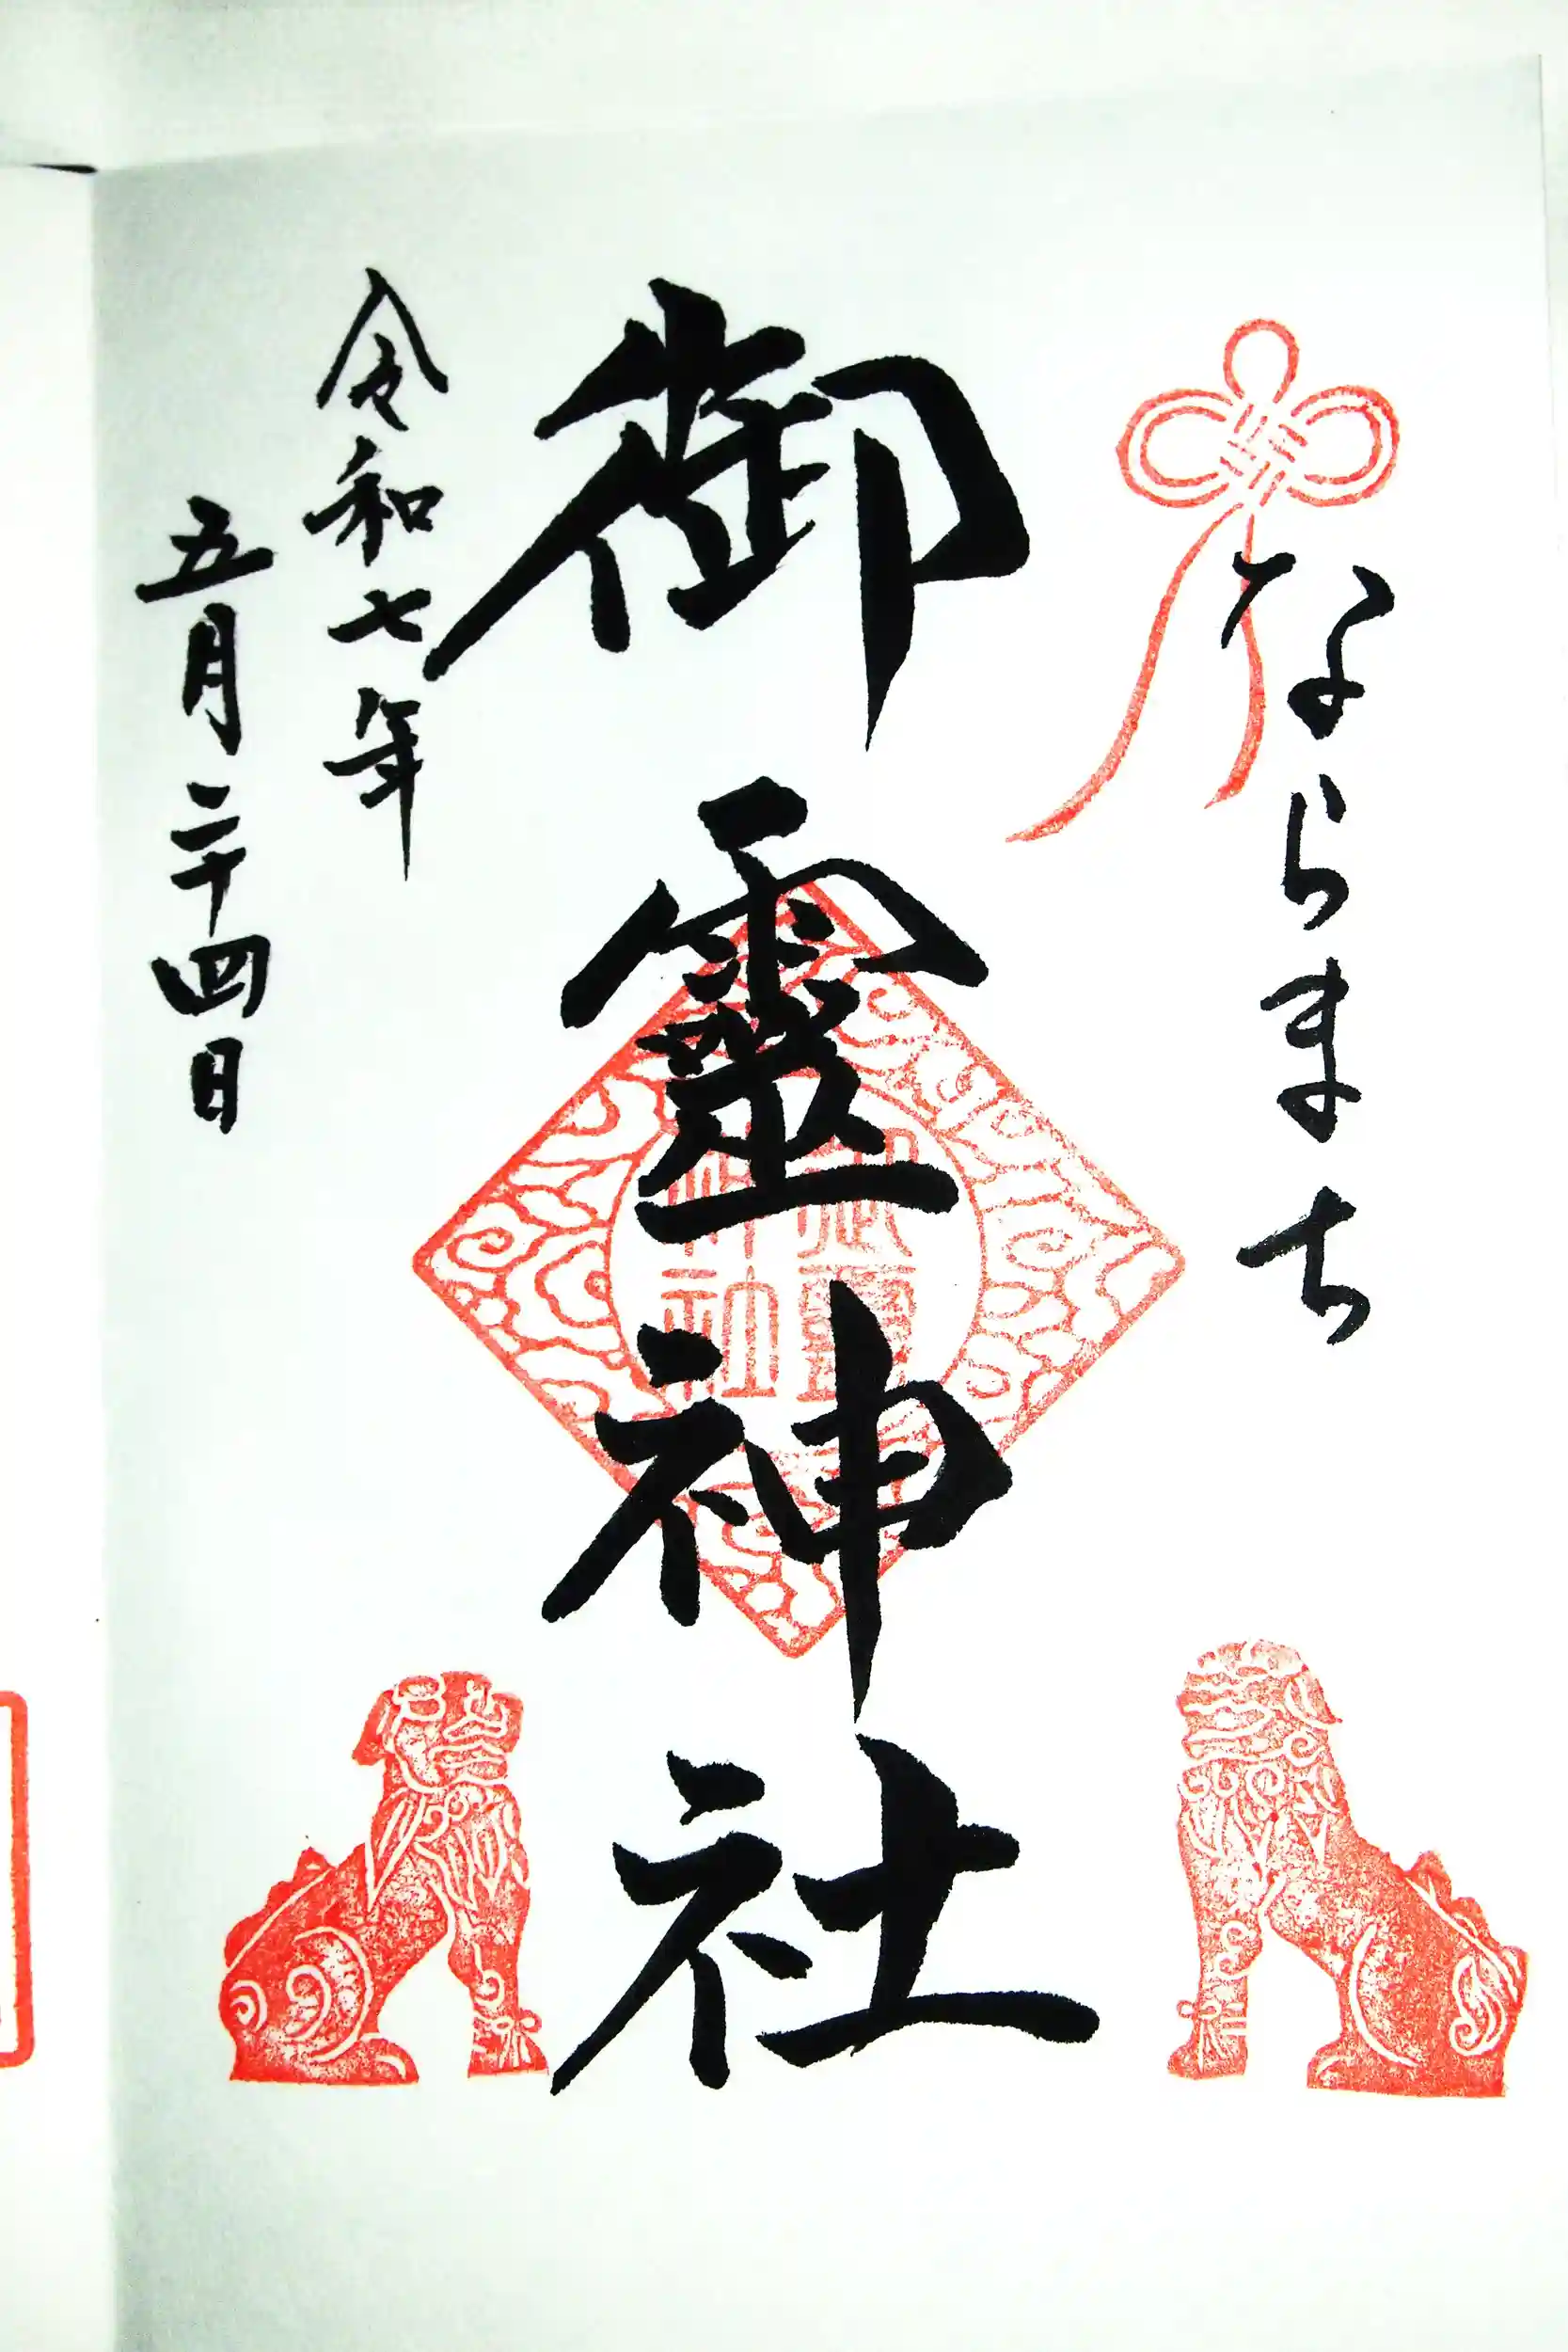 ならまち
御靈神社
御靈
神社
令和七年
五月二十四日